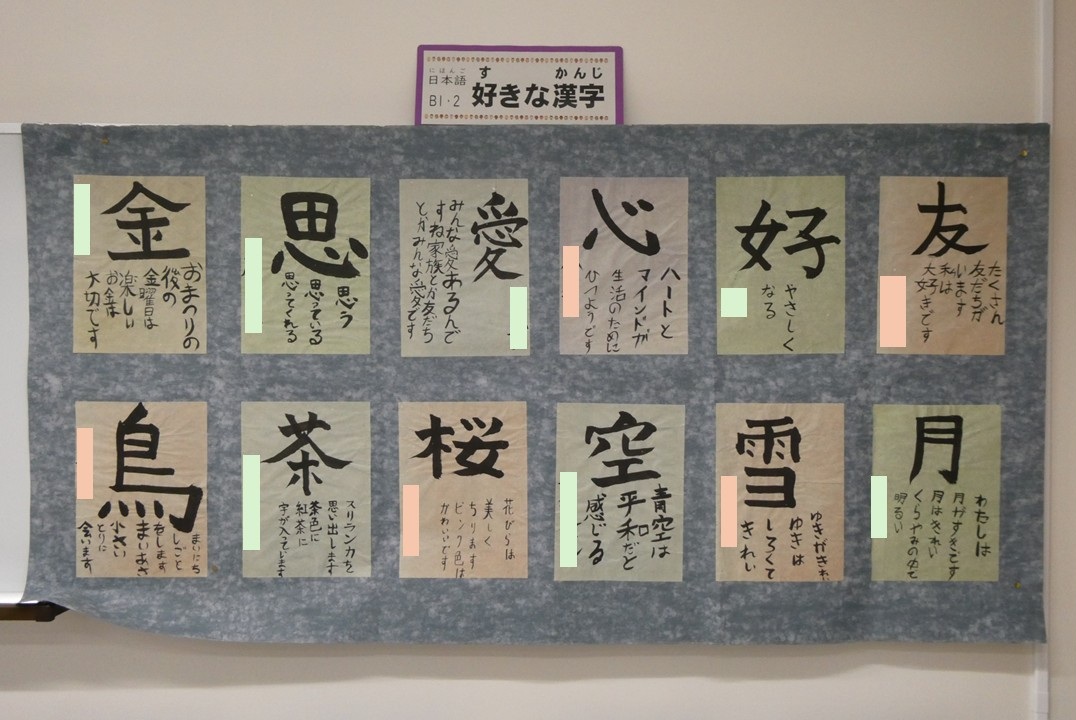 にほんご
日本語
B1・2
す かんじ
好きな漢字
友
たくさん
友だちが
います
私は
大好きです
好
やさしく
なる
心
ハートと
マインドが
生活のために
ひつようです
愛
みんな愛あるんで
すね家族とか友だち
とかみんな愛です
思
思う
思っている
思ってくれる
金
おまつりの
後の
金曜日は
楽しい
お金は
大切です
月
わたしは
月がすきです
月はきれい
くらやみの中で
明るい
雪
ゆきがきれい
ゆきは
しろくて
きれい
空
青空は
平和だと
感じる
桜
花びらは
美しく
ちります
ピンク色は
かわいいです
茶
スリランカを
思い出します
茶色に
紅茶に
字が入っています
鳥
まいにち
しごと
をします
まいあさ
小さい
とりに
会います